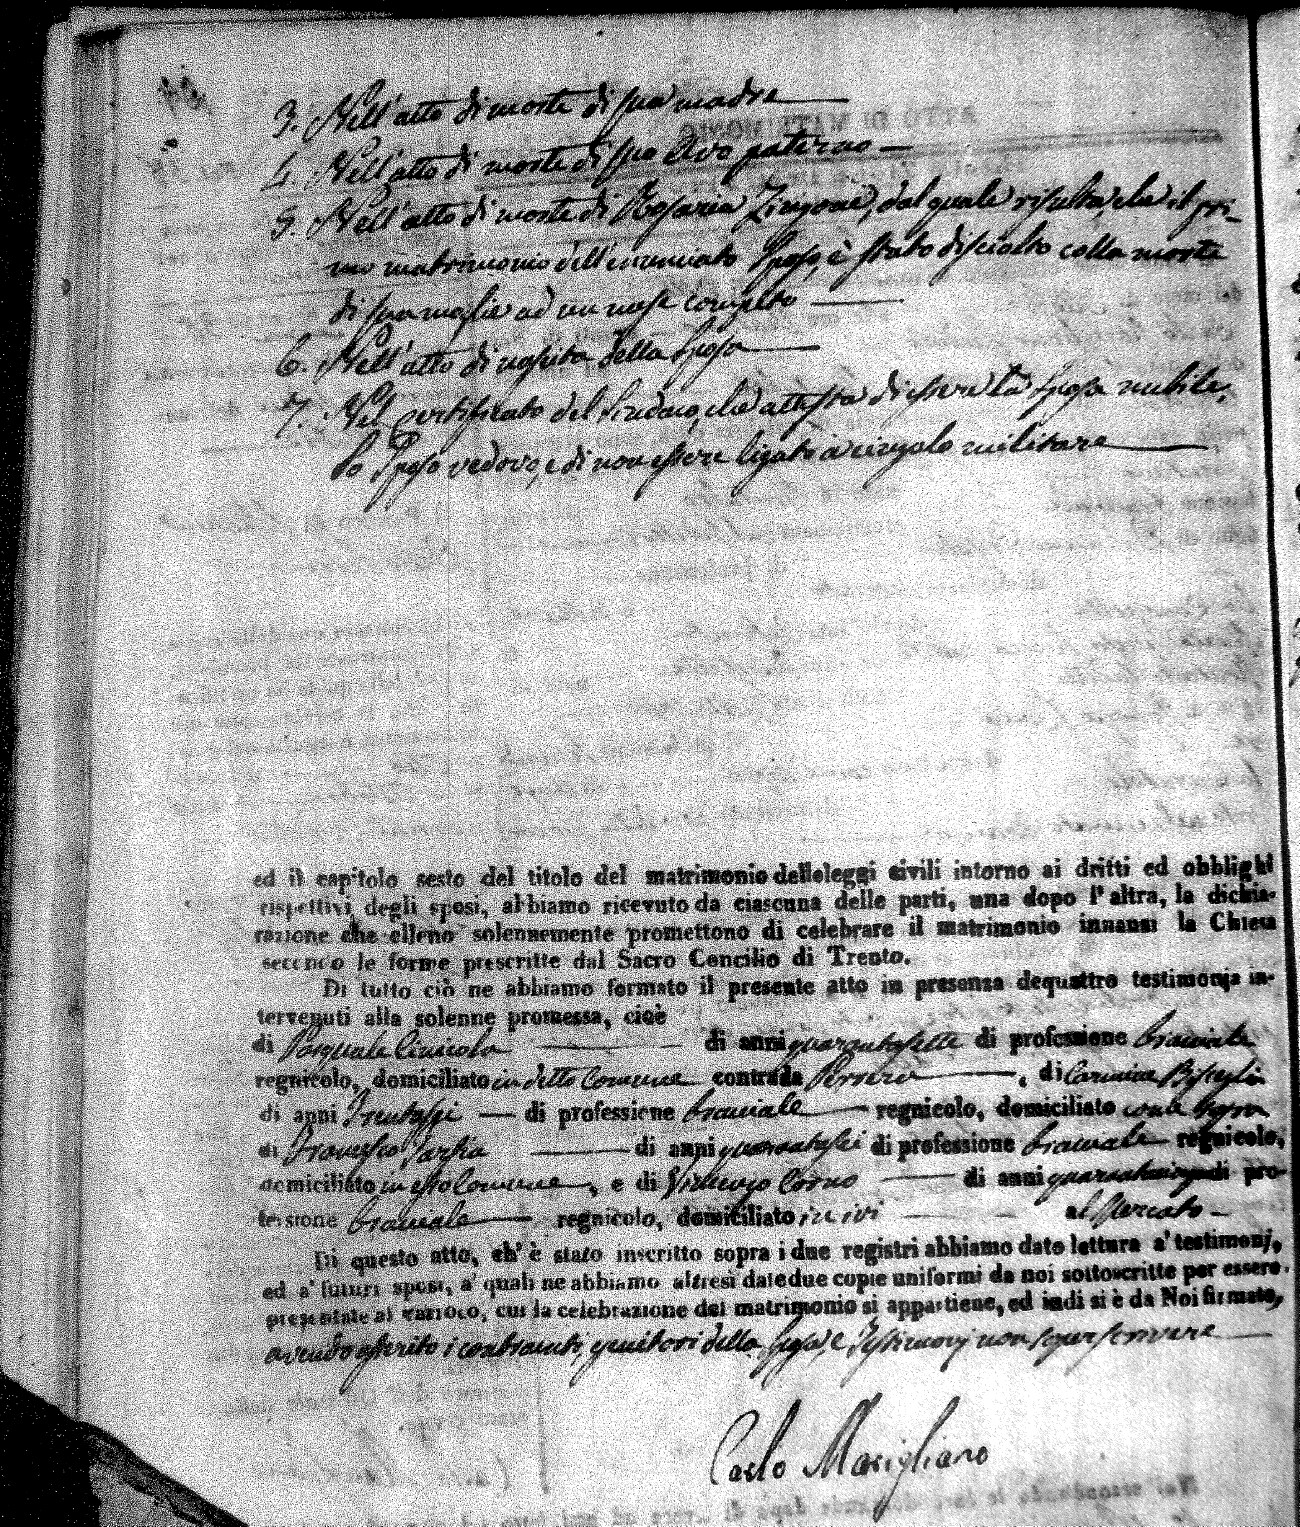 3. Nell'atto di morte di sua madre
4. Nell'atto di morte di suo Avo paterno
5. Nell'atto di morte di Rosaria Zingone, dal quale risulta, che il pri-
mo matrimonio dell'enunciato Sposo, è stato disciolto colla morte
di sua moglie ad un mese compito
6. Nell'atto di nascita della Sposa
7. Nel certificato del Sindaco, che attesta di essere la Sposa nubile,
lo Sposo vedovo, e di non essere ligato a cingolo militare
ed il capitolo sesto del titolo del matrimonio delleleggi civili intorno ai dritti ed obblighi
rispettivi degli sposi, abbiamo ricevuto da ciascuna delle parti, una dopo l'altra, la dichia-
razione che elleno solennemente promettono di celebrare il matrimonio innanzi la Chiesa
secondo le forme prescritte dal Sacro Concilio di Trento.
Di tutto ciò ne abbiamo formato il presente atto in presenza dequattro testimonj in-
tervenuti alla solenne promessa, cioè
di Pasquale di anni quarantasette di professione bracciale
regnicolo, domiciliato in detto Comune contrada , di Carmine
di anni trentasei di professione bracciale regnicolo, domiciliato come sopra
di Francesco di anni quarantasei di professione bracciale regnicolo,
domiciliato in esso Comune, e di Vincenzo di anni quarantacinque di pro-
fessione bracciale regnicolo, domiciliato in ivi al Mercato
Di questo atto, ch'è stato inscritto sopra i due registri abbiamo dato lettura a' testimonj,
ed a' futuri sposi, a' quali ne abbiamo altresì datedue copie uniformi da noi sottoscritte per essere
presentate al parroco, cui la celebrazione del matrimonio si appartiene, ed indi si è da Noi firmato,
avendo asserito i contraenti, genitori della Sposa, e Testimonj non saper scrivere
Carlo Marigliano